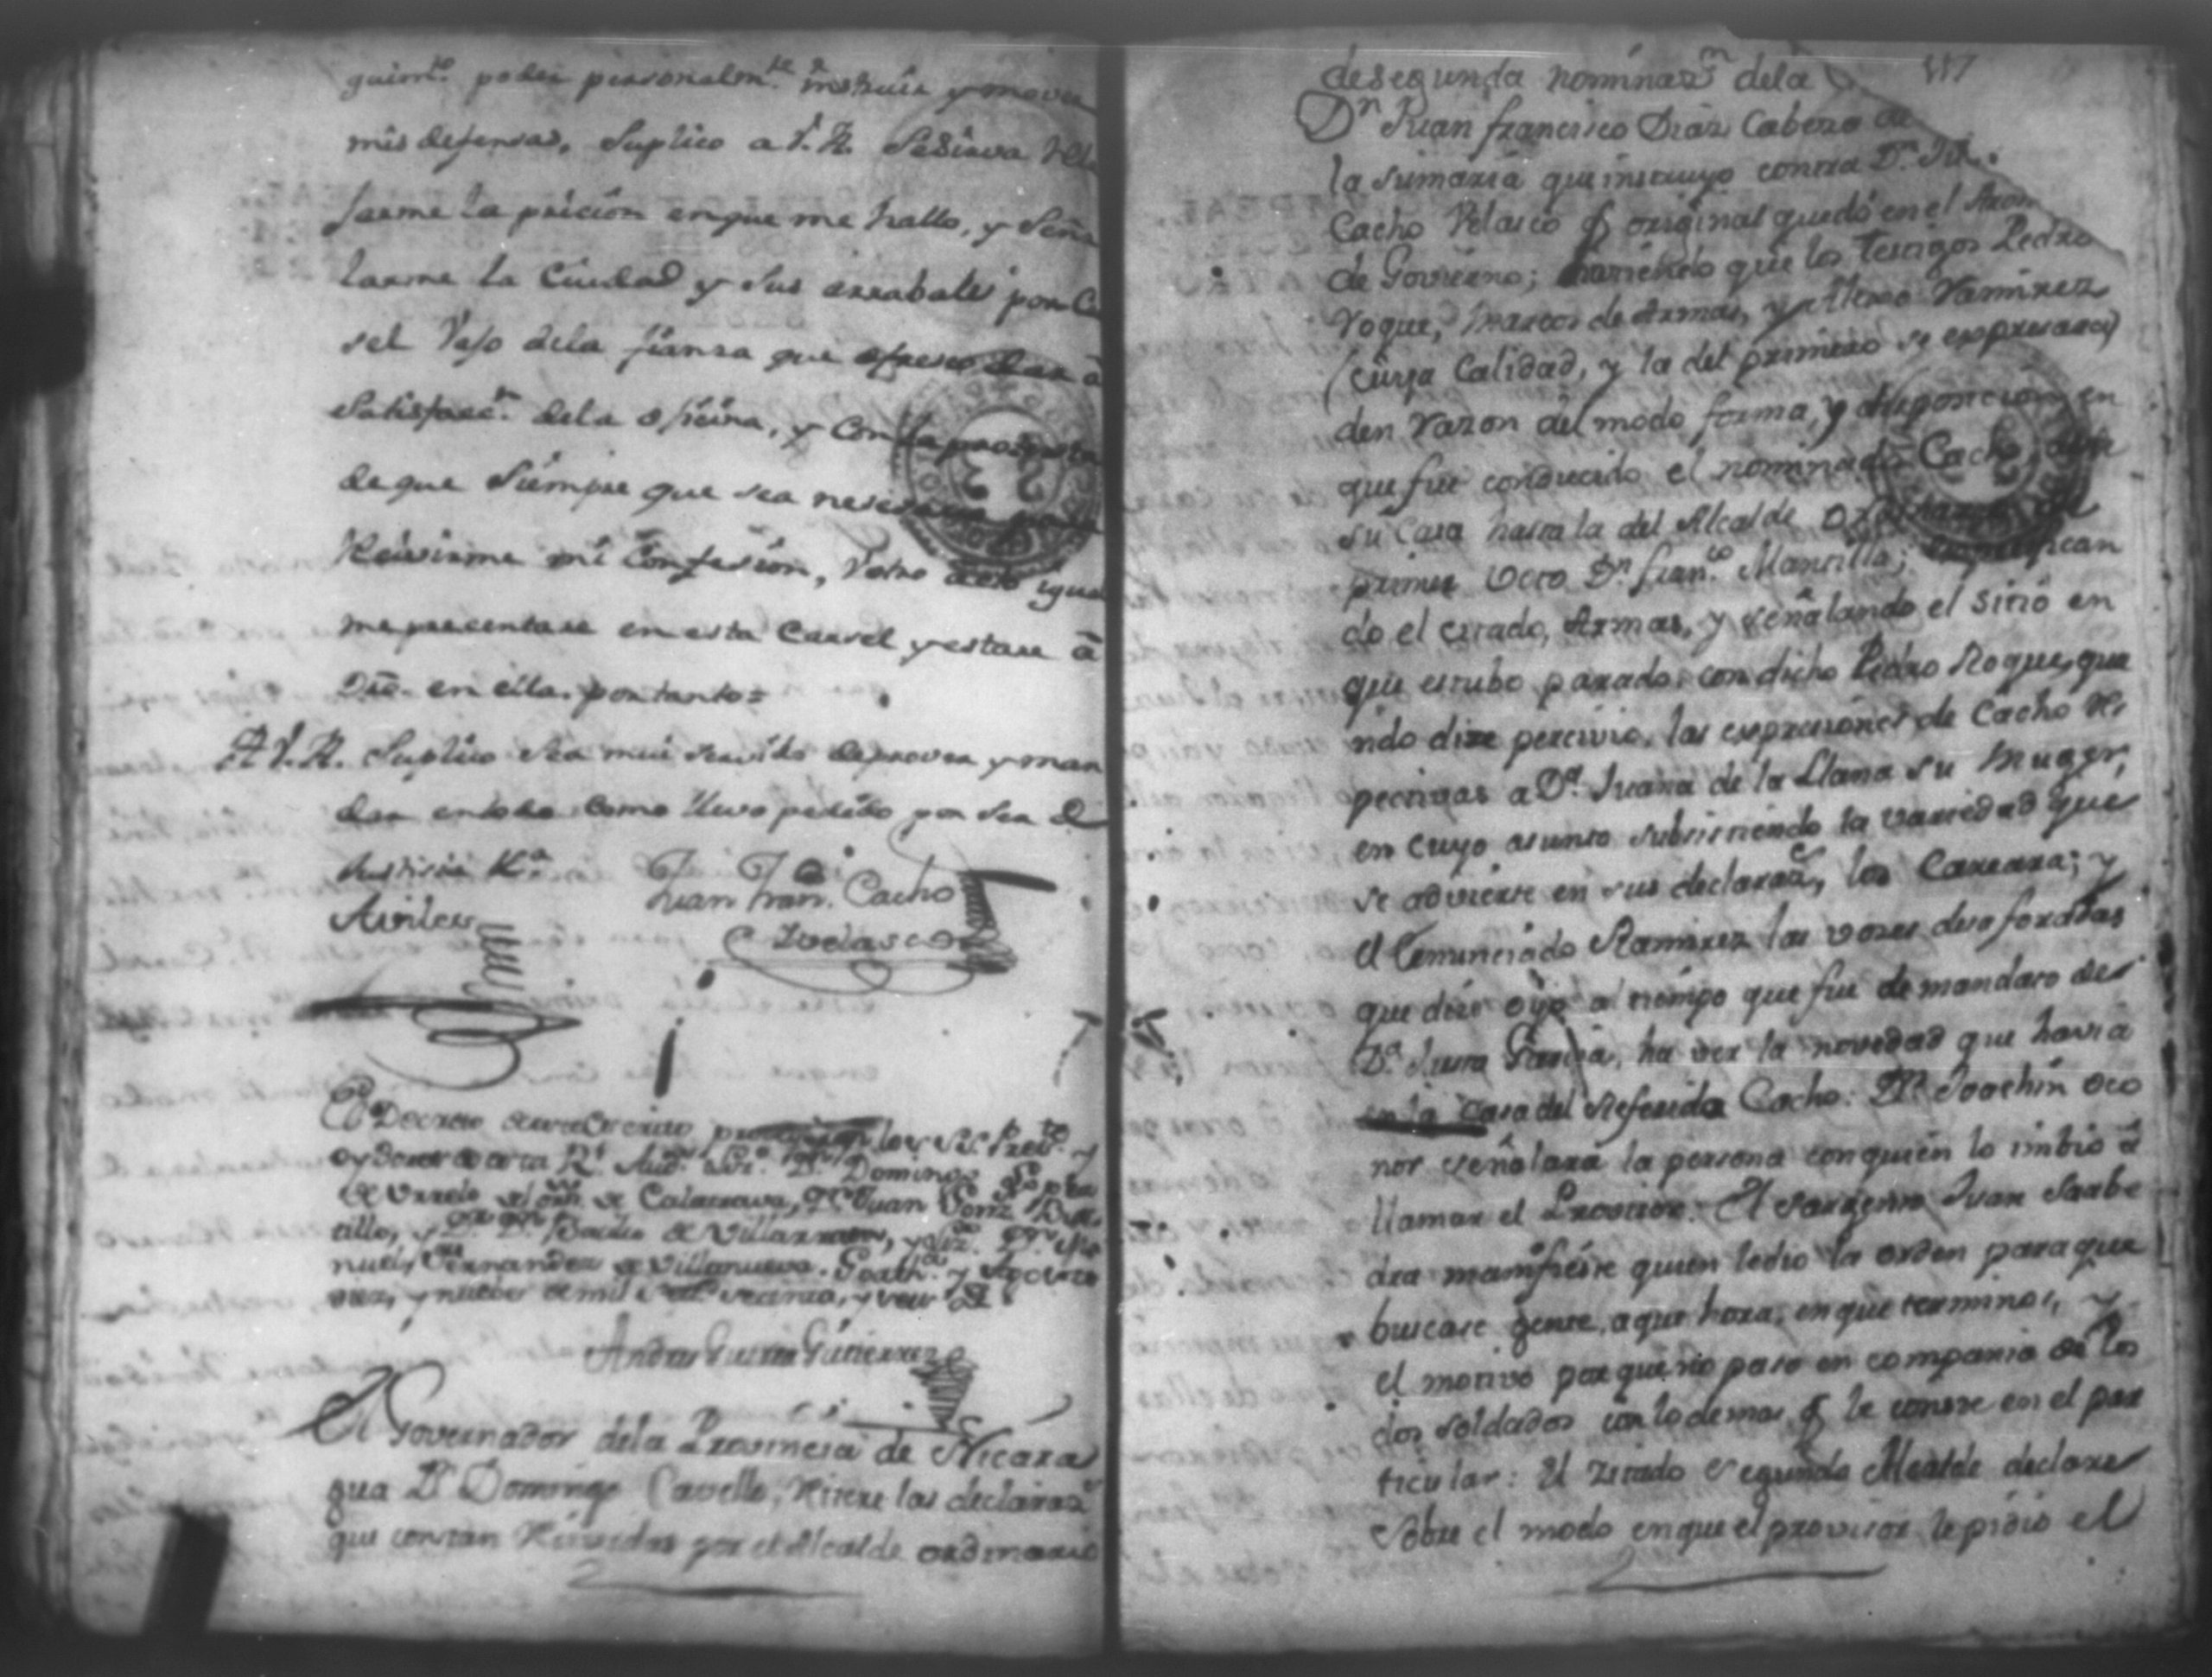 guim.to poder personalm.te instruir y mover
mis defensas, Suplico a V.A. Sesirva Rela
jarme la pricion enque me hallo, y Seña
larme la Ciudad y sus arrabales por Ca
sel Vajo dela fianza que ofresco dar a
Satisfacc.n dela oficina, y con la protesta
deque Siempre que sea nesesario para
Resivirme mi Confesion, V otro acto igual
mepresentare en esta Carsel y estare a
Dro. en ella. portanto=
A V.A. Suplico sea mui servido deprover y man
dar entodo como llevo pedido por ser de
Justicia
Juan Fran.co Cacho
Aviles
Velasco
El Decreto
oydores de esta R.l Aud.a D.n Domingo Lopez
de Urrelo de Calatrava, D.n Juan Gonz.
tillo, y D. Basilio de Villarrasa, y D.n Ma
nuel Fernandez de Villanueva. Goath.a y Agosto
diez, y nueve de mil setec.s sesenta, y
Andres Guerra Gutierrez
El Governador dela Provincia de Nicara
gua D.n Domingo Cavello, Ritere las declaraz.s
que constan Resividas por el Alcalde ordinario
117
desegunda nominaz.n dela
D.n Juan francisco Diaz Cabeza de
la sumaria que instruyo contra D.n Ju.
Cacho Velasco q original quedó en el
de Govierno; haciendo que los testigos Pedro
Roque, Marcos de Armas, y Ramirez
(cuya Calidad, y la del primero se expresara)
den razon del modo forma, y disposicion en
que fue conducido el nominado Cacho desde
su Casa hasta la del Alcalde
primer Voto D.n fran.co Mansilla;
do el citado, Armas, y señalando el sitio en
que estubo parado, con dicho Pedro Roque, qua
ndo dize percivio, las expresiones de Cacho Res
pectivas a D.a Juana de la Llana su Muger,
en cuyo asunto subsistiendo la variedad que
se advierte en sus declaraz.s, los Careara; y
el Comunciado Ramirez las vozes desaforadas
que dize oyó al tiempo que fue de mandato de
D.a Juana Garcia, ha ver la novedad que havia
en la Casa del Referido Cacho: D.n Joachin Oco
nor señalara la persona con quien lo imbió a
llamar el Provisor: El Sargento Juan Saabe
dra manifieste quien ledio la orden para que
buscase gente, aque hora, enque terminos, y
el motivo porque no paso en compania de los
dos soldados con lo demas q le conste en el par
ticular: El zitado segundo Alcalde declare
sobre el modo enque el provisor le pidió el